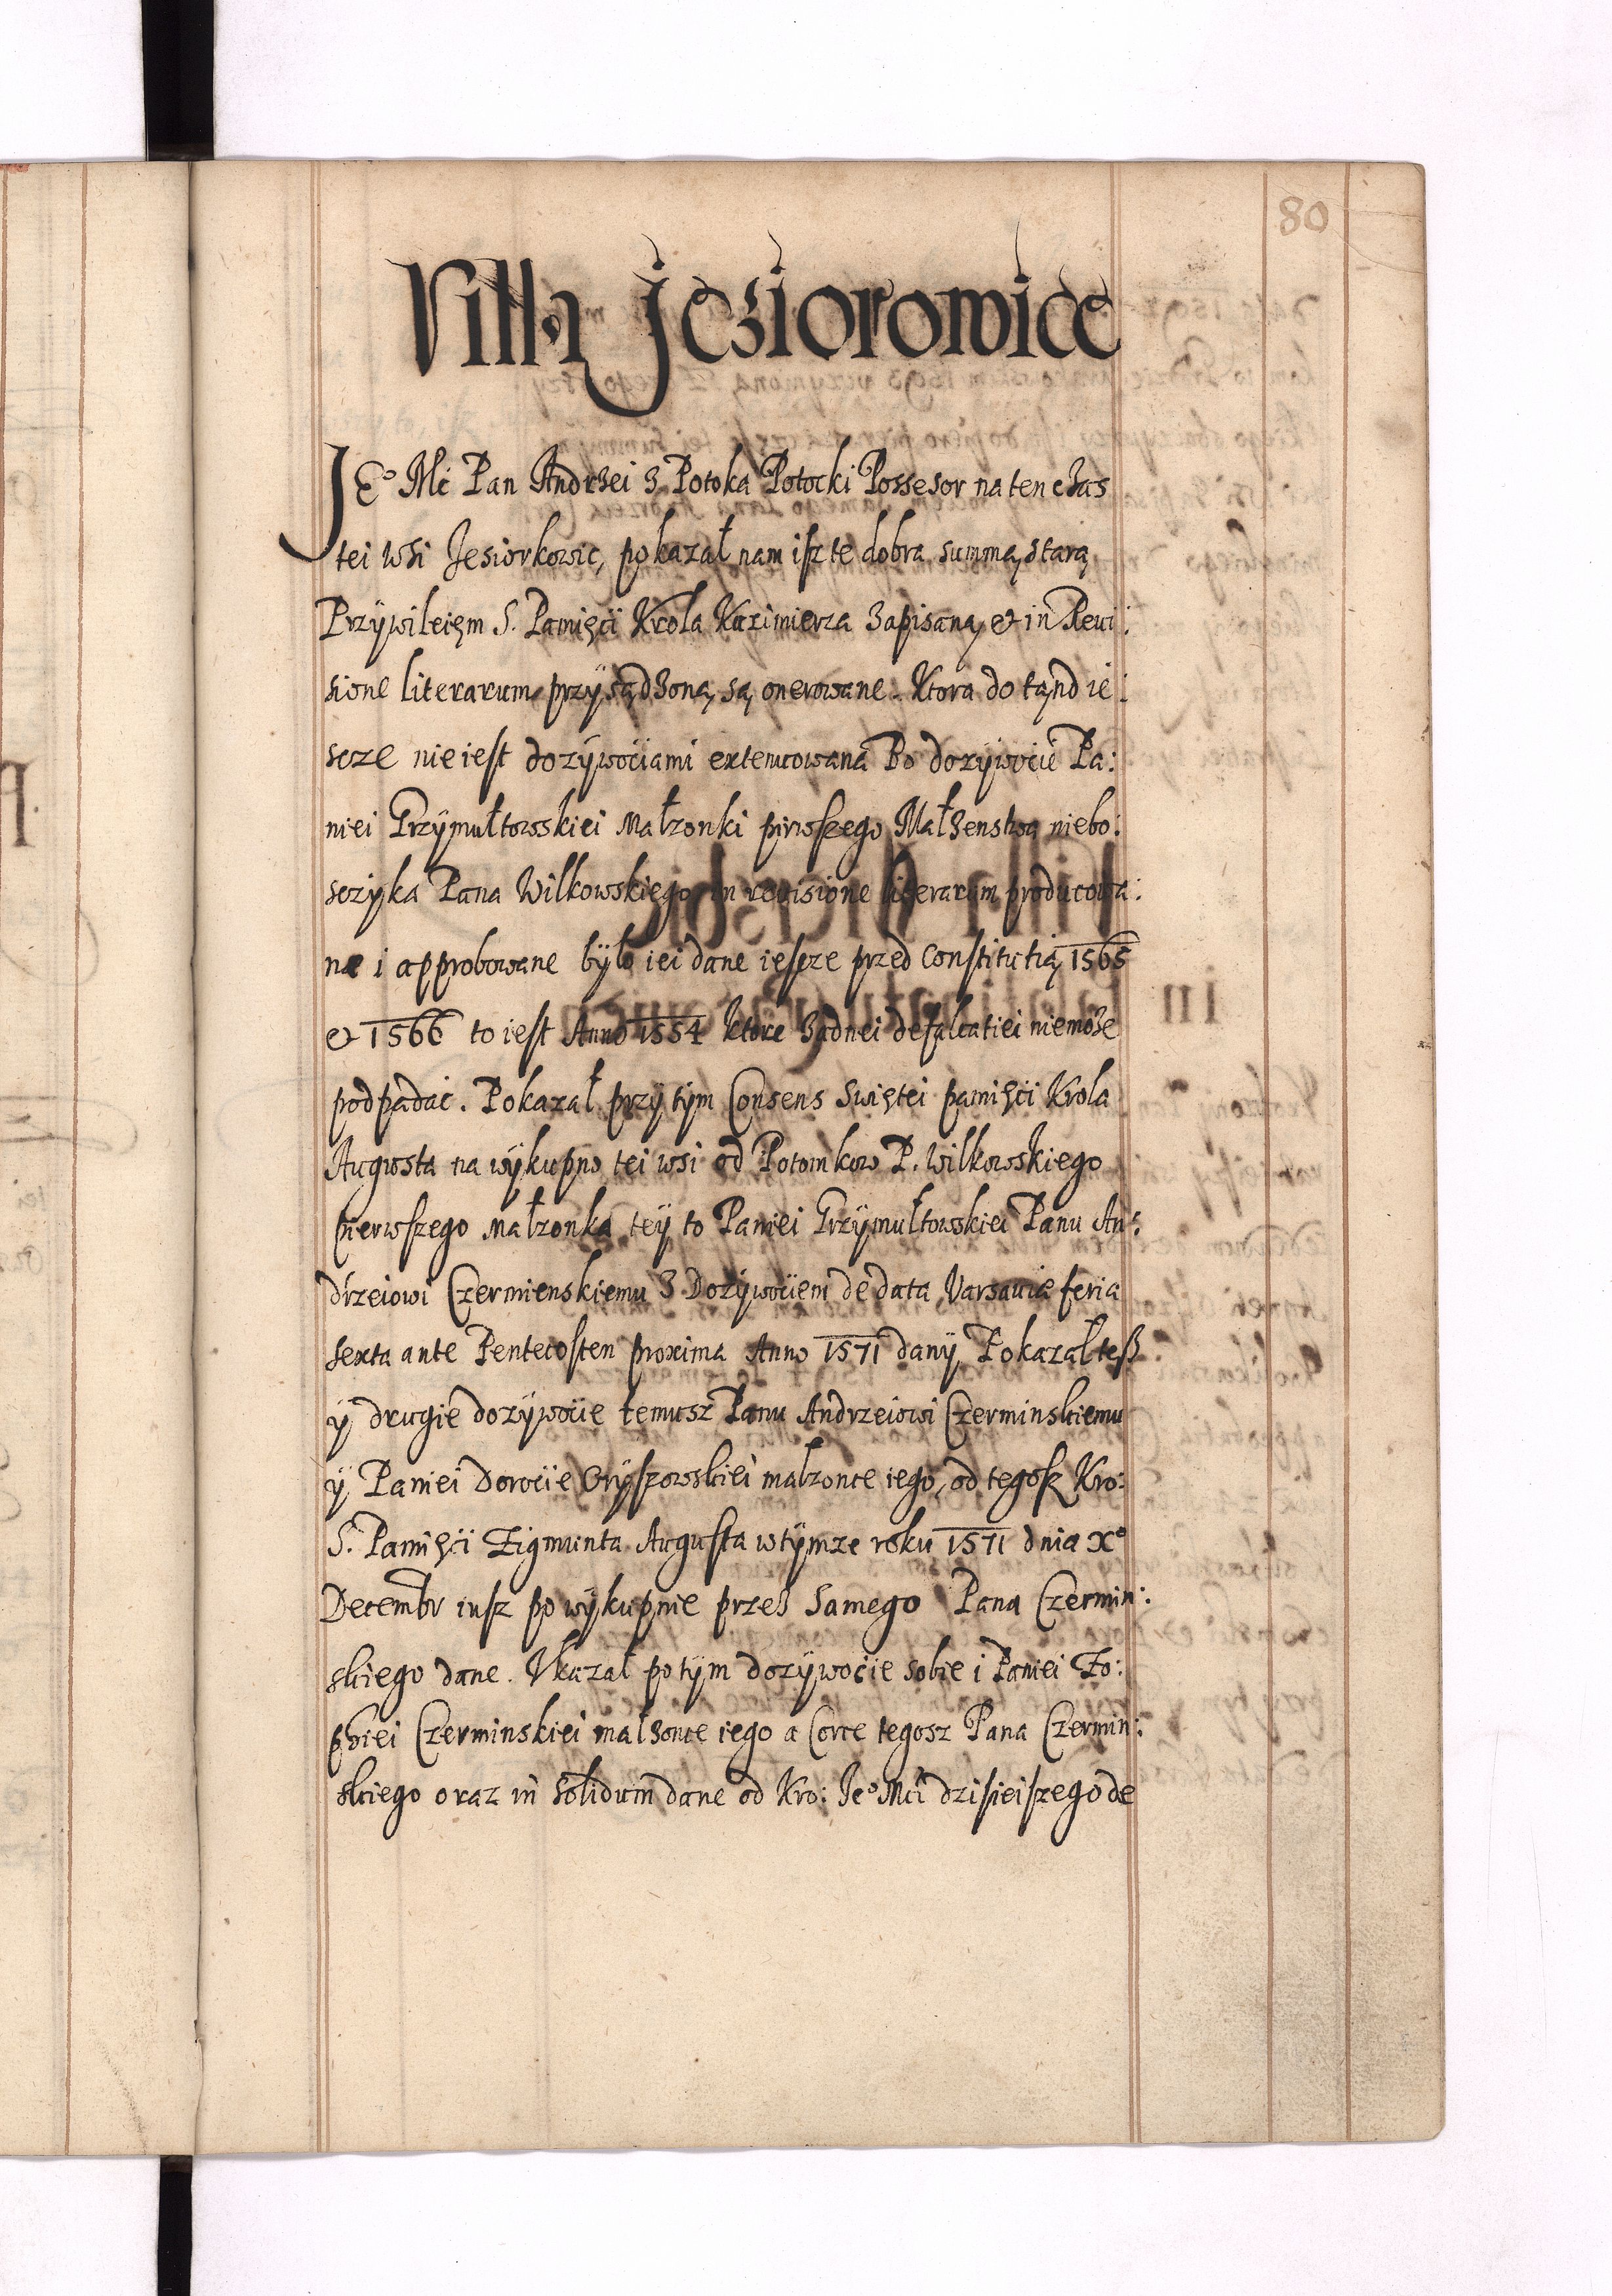 80
Villa Jeziorowice
Je° Mć Pan Andrzei z Potoka Potocki Possesor na ten czas
tei wsi Jesiorkowic, pokazał nam isz te dobra summą starą
Przÿwileięm S. Pamięci Krola Kazimierza zapisaną et in Reui:
sione literarum przÿsądzoną są onerowane. Ktora do tąnd ie:
scze nie iest dozÿwociami extenuowana Bo dozÿwocie Pa:
niei Grzÿmułtowskiei Małzonki pirwszego Małzenstwa niebo:
sczyka Pana Wilkowskiego in reuisione literarum producowa:
ne i approbowane bÿło iei dane iescze przed Constitutią 1565
et 1566 to iest Anno 1554 ktore zadnei defalcatiei niemoze
podpadać. Pokazał przÿ tÿm Consens Swiętei pamięci Krola
Augusta na wÿkupno tei wsi od Potomkow P. Wilkowskiego
pierwszego Małzonka teÿ to Paniei Grzÿmułtowskiei Panu An:
drzeiowi Czermienskiemu z Dozÿwociem de data Varsauiæ feria
sexta ante Pentecosten proxima Anno 1571 danÿ Pokazał tesz
ÿ drugie dozÿwocie temusz Panu Andrzeiowi Czerminskiemu
ÿ Paniei Dorocie Orÿszowskiei małzonce iego, od tegosz Kro:
S. Pamięci Zigmunta Augusta w tÿmze roku 1571 dnia X°
Decembr iusz po wÿkupnie przes samego Pana Czermin:
skiego dane. Vkazał potÿm dozÿwocie sobie i Paniei Zo:
phiei Czerminskiei małzonce iego a Corce tegosz Pana Czermin:
skiego oraz in solidum dane od Kro: Je° Mći dzisieiszego de